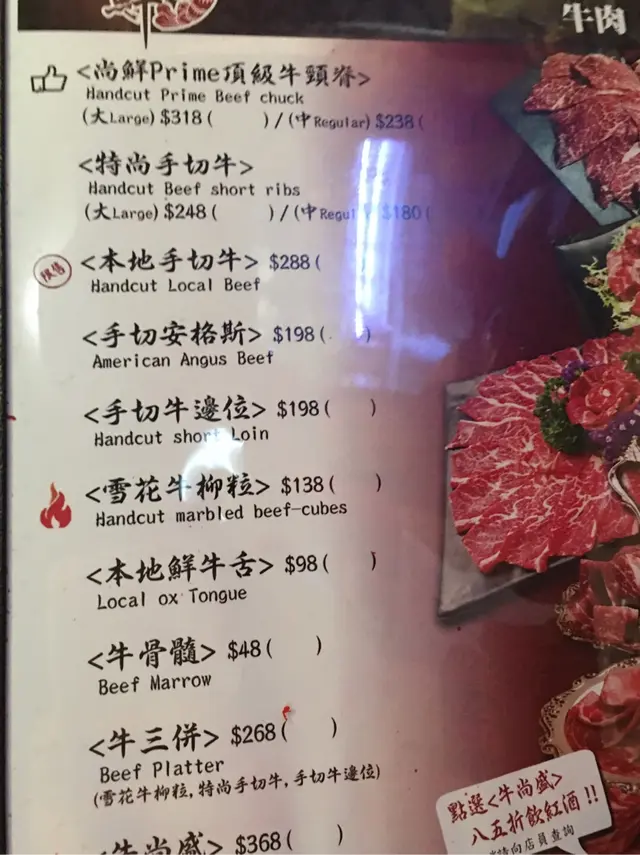 牛肉
<尚鮮Prime頂級牛頸脊>
Handcut Prime Beef chuck
(大Large) $318 ( ) / (中Regular) $238 (
<特尚手切牛>
Handcut Beef short ribs
(大Large) $248 ( ) / (中Regul $180 (
<本地手切牛> $288 (
Handcut Local Beef
<手切安格斯> $198 ( )
American Angus Beef
<手切牛邊位> $198 ( )
Handcut short Loin
<雪花牛柳粒> $138 ( )
Handcut marbled beef-cubes
<本地鮮牛舌> $98 ( )
Local ox Tongue
<牛骨髓> $48 ( )
Beef Marrow
<牛三併> $268 ( )
Beef Platter
(雪花牛柳粒,特尚手切牛,手切牛邊位)
<牛尚盛> $368 ( )
點選<牛尚盛>
八五折飲紅酒 !!
請向店員查詢